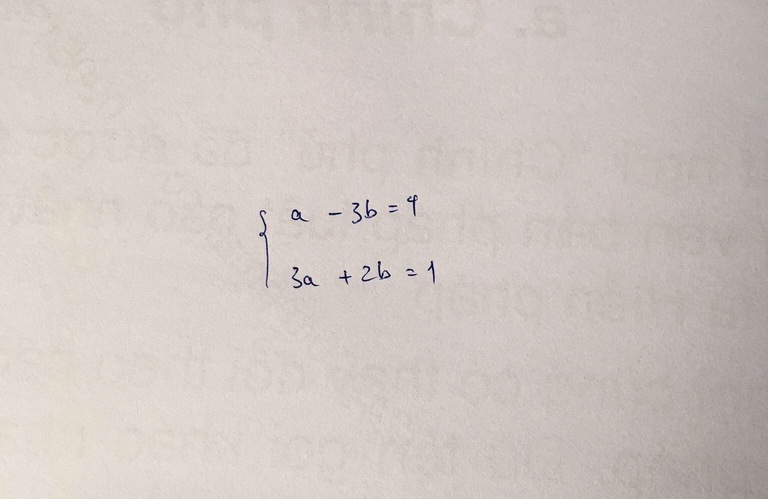 a - 3b = 4
3a + 2b = 1